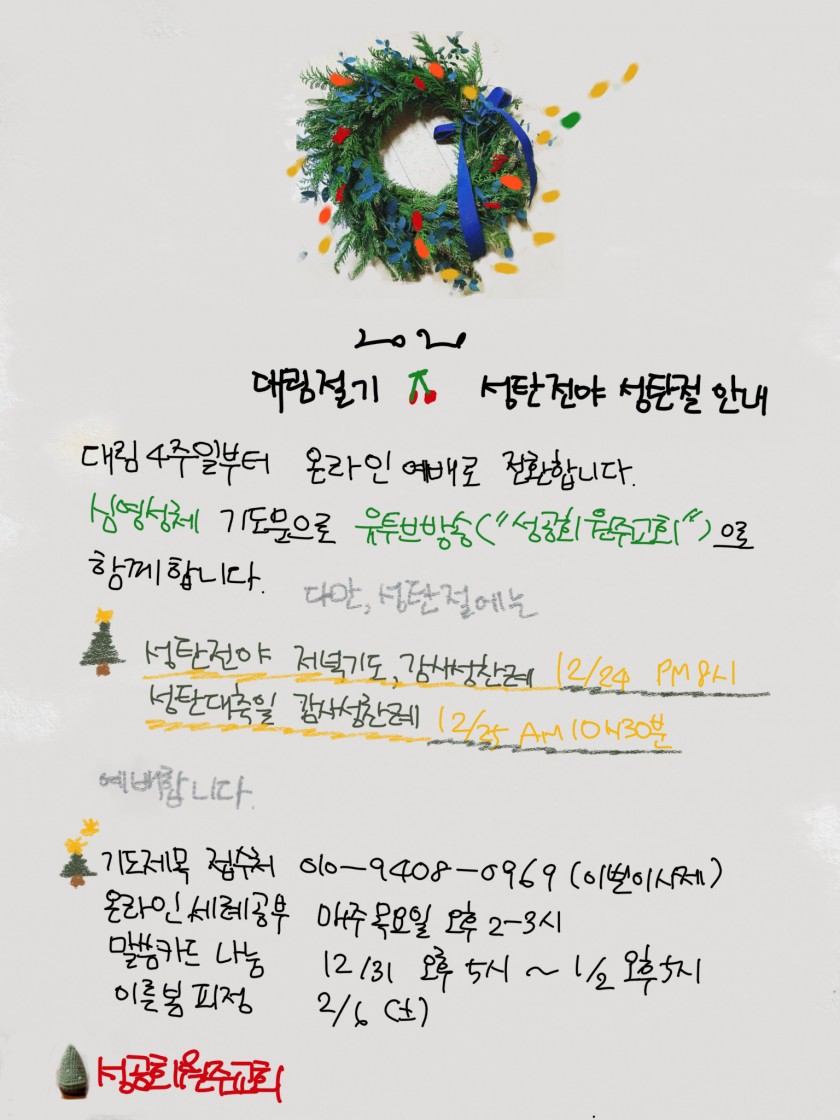 2020
대림절기 성탄전야 성탄절 안내
대림 4주일부터 온라인 예배로 전환합니다.
심영성체 기도문으로 유투브방송("성공회원주교회")으로
함께합니다.
다만, 성탄절에는
성탄전야 저녁기도, 감사성찬례 12/24 PM 8시
성탄대축일 감사성찬례 12/25 AM 10시30분
예배합니다.
기도제목 접수처 010-9408-0969 (이벌이사제)
온라인세례공부 매주 목요일 오후 2-3시
말씀카드 나눔 12/31 오후 5시 ~ 1/2 오후 5시
이른봄 피정 2/6 (土)
성공회원주교회